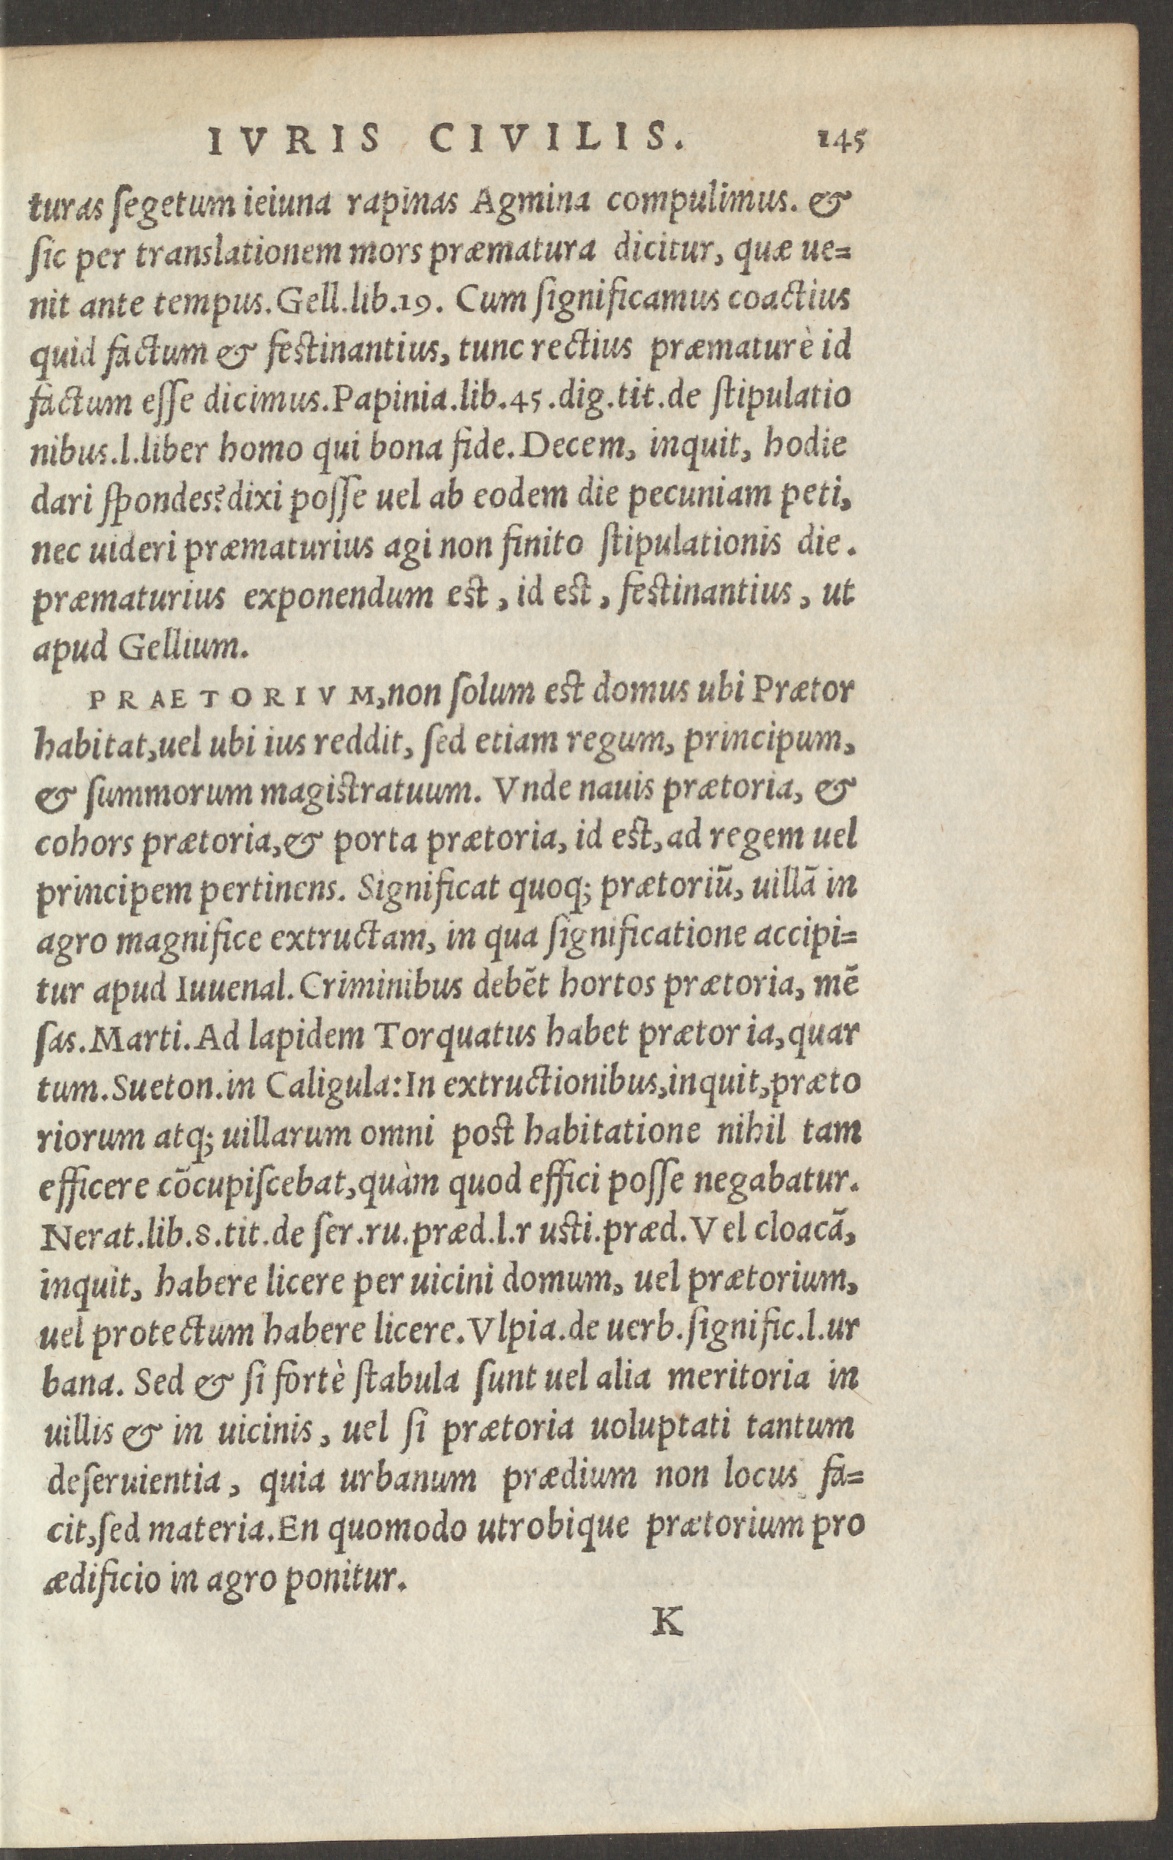 IVRIS CIVILIS. 145
turas ſegetum ieiuna rapinas Agmina compulimus. &
ſic per translationem mors præmatura dicitur, quæ ue=
nit ante tempus.Gell.lib.19. Cum ſignificamus coactius
quid factum & feſtinantius, tunc rectius præmaturè id
factum eſſe dicimus.Papinia.lib.45.dig.tit.de ſtipulatio
nibus.l.liber homo qui bona fide.Decem, inquit, hodie
dari ſpondes?dixi poſſe uel ab eodem die pecuniam peti,
nec uideri præmaturius agi non finito ſtipulationis die.
præmaturius exponendum eſt, id eſt, feſtinantius, ut
apud Gellium.
PRAETORIVM,non ſolum eſt domus ubi Prætor
habitat,uel ubi ius reddit, ſed etiam regum, principum,
& ſummorum magiſtratuum. Vnde nauis prætoria, &
cohors prætoria,& porta prætoria, id eſt, ad regem uel
principem pertinens. Significat quoq; prætoriū, uillā in
agro magnifice extructam, in qua ſignificatione accipi=
tur apud Iuuenal.Criminibus debēt hortos prætoria, mē
ſas.Marti.Ad lapidem Torquatus habet prætor ia,quar
tum.Sueton.in Caligula:In extructionibus,inquit,præto
riorum atq; uillarum omni post habitatione nihil tam
efficere cōcupiſcebat,quàm quod effici poſſe negabatur.
Nerat.lib.8.tit.de ſer.ru.præd.l.r uſti.præd.Vel cloacā,
inquit, habere licere per uicini domum, uel prætorium,
uel protectum habere licere.Vlpia.de uerb.ſignific.l.ur
bana. Sed & ſi fortè ſtabula ſunt uel alia meritoria in
uillis & in uicinis, uel ſi prætoria uoluptati tantum
deſeruientia, quia urbanum prædium non locus fa=
cit,ſed materia.En quomodo utrobique prætorium pro
ædificio in agro ponitur.
K